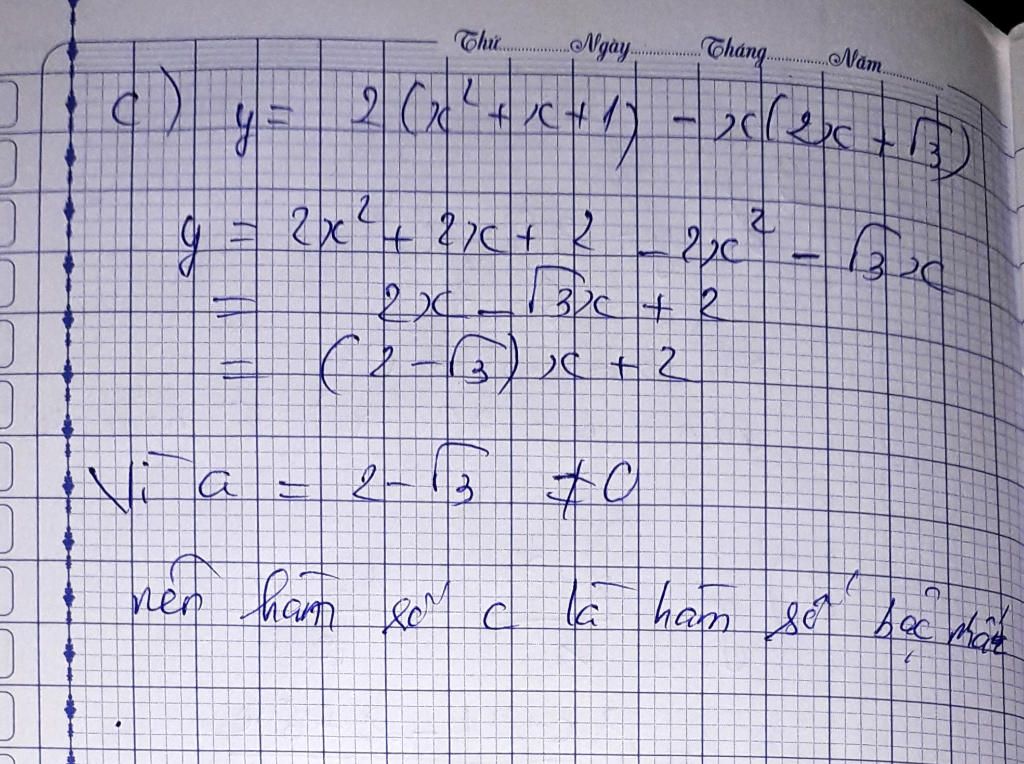 Thứ............Ngày............Tháng............Năm............
c) y = 2(x² + x + 1) - x(2x + √3)
y = 2x² + 2x + 2 - 2x² - √3x
= 2x - √3x + 2
= (2 - √3)x + 2
Vì a = 2 - √3 ≠ 0
nên hàm số c là hàm số bậc nhất